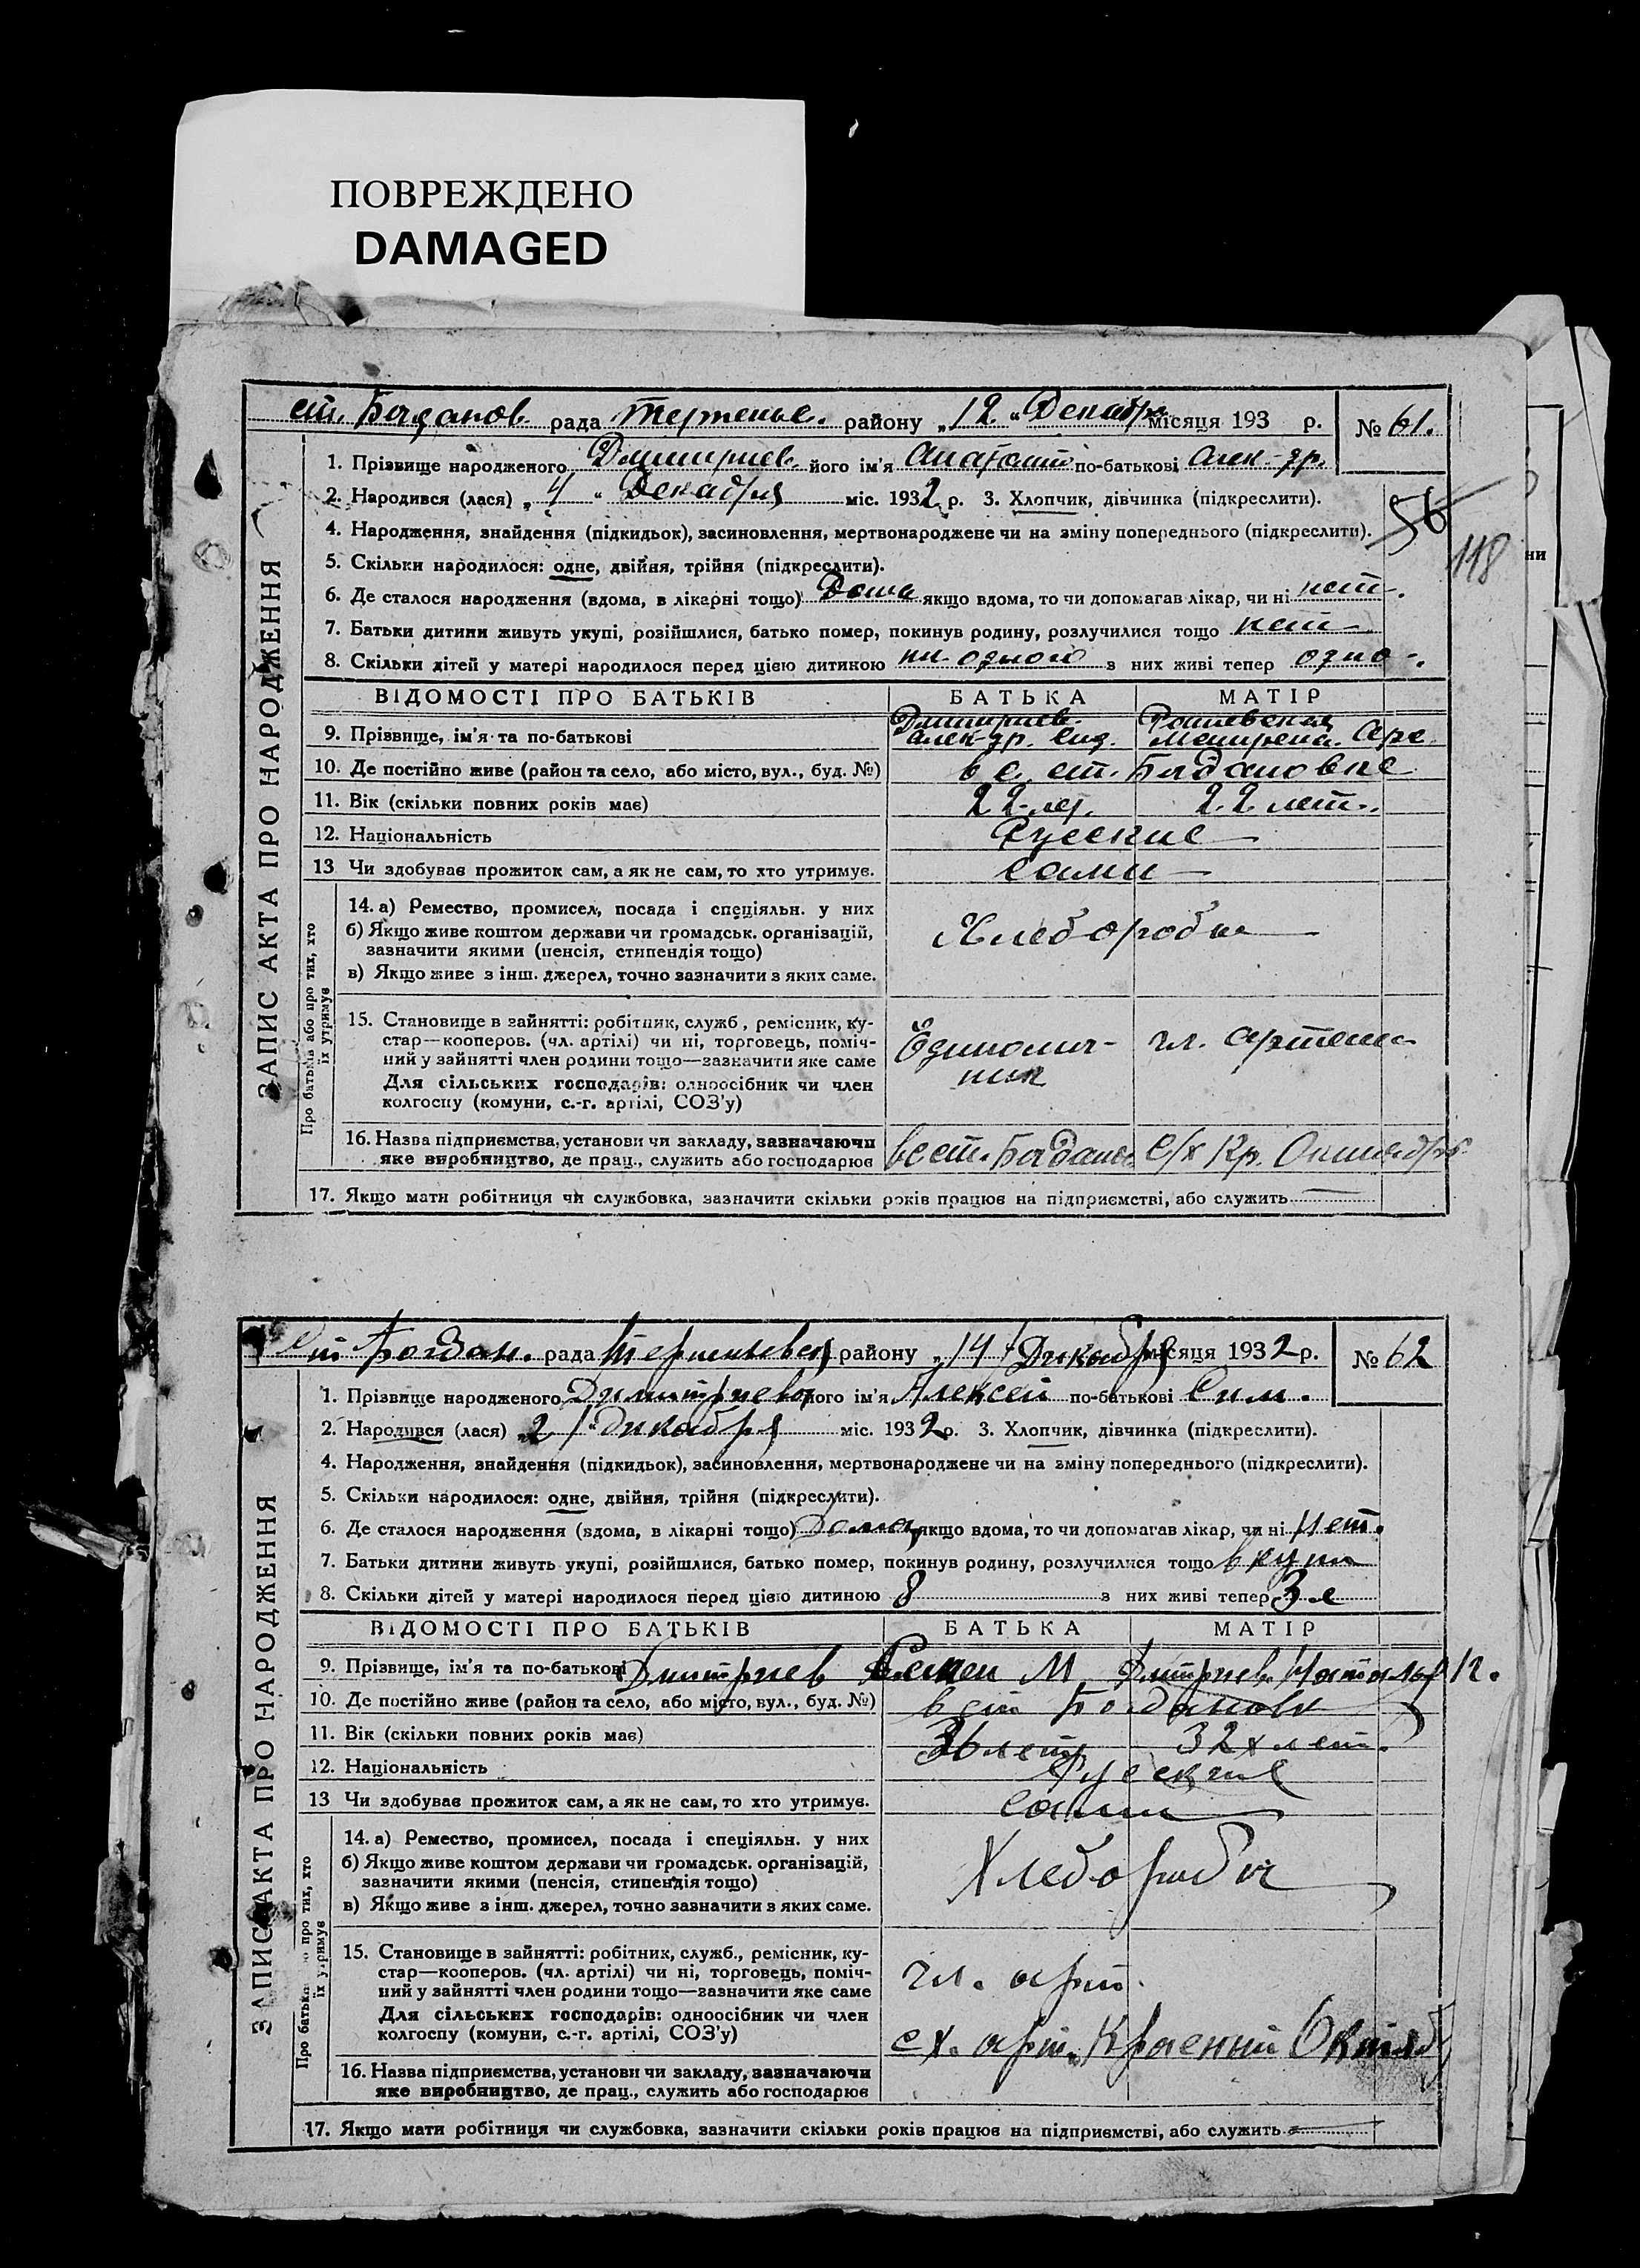 ПОВРЕЖДЕНО
DAMAGED
ст. Богданов. рада Терпенье. району „12“ Декабря місяця 193 р. № 61.
1. Прізвище народженого Дмитриев його ім'я Анатолий по-батькові Алек-др.
2. Народився (лася) „4“ Декабря міс. 1932 р. 3. Хлопчик, дівчинка (підкреслити).
56
4. Народження, знайдення (підкидьок), засиновлення, мертвонароджене чи на зміну попереднього (підкреслити).
118
5. Скільки народилося: одне, двійня, трійня (підкреслити).
6. Де сталося народження (вдома, в лікарні тощо) Дома якщо вдома, то чи допомагав лікар, чи ні нет.
7. Батьки дитини живуть укупі, розійшлися, батько помер, покинув родину, розлучилися тощо нет
8. Скільки дітей у матері народилося перед цією дитиною ни одного з них живі тепер одно
ВІДОМОСТІ ПРО БАТЬКІВ БАТЬКА МАТІР
9. Прізвище, ім'я та по-батькові Дмитриев. Алек-др.
10. Де постійно живе (район та село, або місто, вул., буд. №) в с. ст. Богдановке
11. Вік (скільки повних років має) 22 лет. 22 лет.
12. Національність Русские
13 Чи здобував прожиток сам, а як не сам, то хто утримує. Сами
14. а) Ремество, промисел, посада і спеціяльн. у них
б) Якщо живе коштом держави чи громадськ. організацій,
зазначити якими (пенсія, стипендія тощо) Хлеборобы
в) Якщо живе з інш. джерел, точно зазначити з яких саме.
15. Становище в зайнятті: робітник, служб, ремісник, ку-
стар—кооперов. (чл. артілі) чи ні, торговець, поміч-
ний у зайнятті член родини тощо—зазначити яке саме
Для сільських господарів: одноосібник чи член
колгоспу (комуни, с.-г. артілі, СОЗ'у)
Единолич-
ник
чл. артели
16. Назва підприємства, установи чи закладу, зазначаючи
яке виробництво, де прац., служить або господарює
в с ст. Богданов с/х Кр. Октябрь
17. Якщо мати робітниця чи службовка, зазначити скільки років працює на підприємстві, або служить
ЗАПИС АКТА ПРО НАРОДЖЕННЯ
Про батьків або про тих, хто
їх утримує
ст Богдан. рада Терпеньевск району „14“ Дикабря місяця 1932 р. № 62
1. Прізвище народженого Димитриев його ім'я Алексей по-батькові Сим.
2. Народився (лася) „21“ дикабря міс. 1932 р. 3. Хлопчик, дівчинка (підкреслити).
4. Народження, знайдення (підкидьок), засиновлення, мертвонароджене чи на зміну попереднього (підкреслити).
5. Скільки народилося: одне, двійня, трійня (підкреслити).
6. Де сталося народження (вдома, в лікарні тощо) Дома якщо вдома, то чи допомагав лікар, чи ні Нет.
7. Батьки дитини живуть укупі, розійшлися, батько помер, покинув родину, розлучилися тощо вкупи
8. Скільки дітей у матері народилося перед цією дитиною 8 з них живі тепер 3-е
ВІДОМОСТІ ПРО БАТЬКІВ БАТЬКА МАТІР
9. Прізвище, ім'я та по-батькові Дмитриев Семен М Дмитриев. Наталья
10. Де постійно живе (район та село, або місто, вул., буд. №) в ст Богдановк
11. Вік (скільки повних років має) 36 лет 32х лет.
12. Національність Русские
13 Чи здобував прожиток сам, а як не сам, то хто утримує. Сами
14. а) Ремество, промисел, посада і спеціяльн. у них
б) Якщо живе коштом держави чи громадськ. організацій,
зазначити якими (пенсія, стипендія тощо) Хлеборобы
в) Якщо живе з інш. джерел, точно зазначити з яких саме.
15. Становище в зайнятті: робітник, служб., ремісник, ку-
стар—кооперов. (чл. артілі) чи ні, торговець, поміч-
ний у зайнятті член родини тощо—зазначити яке саме
Для сільських господарів: одноосібник чи член
колгоспу (комуни, с.-г. артілі, СОЗ'у)
чл. арт.
с х. арт. Красний Октяб
16. Назва підприємства, установи чи закладу, зазначаючи
яке виробництво, де прац., служить або господарює
17. Якщо мати робітниця чи службовка, зазначити скільки років працює на підприємстві, або служить
ЗАПИС АКТА ПРО НАРОДЖЕННЯ
Про батьків про тих, хто
їх утримує